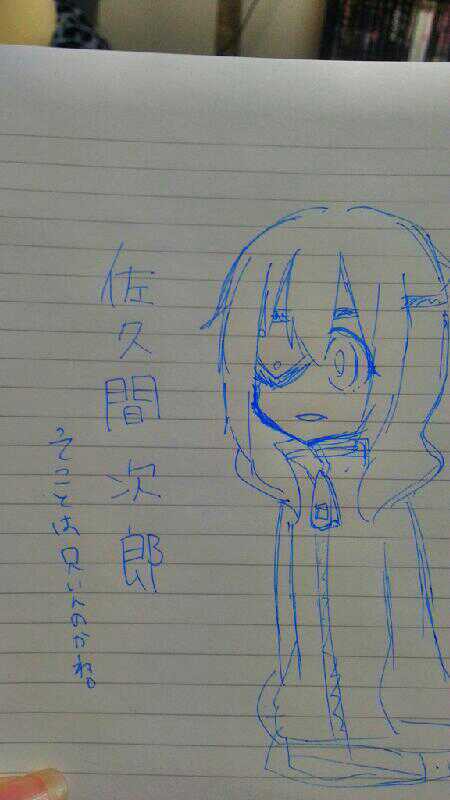 佐久間次郎
てことは兄いんのかね。